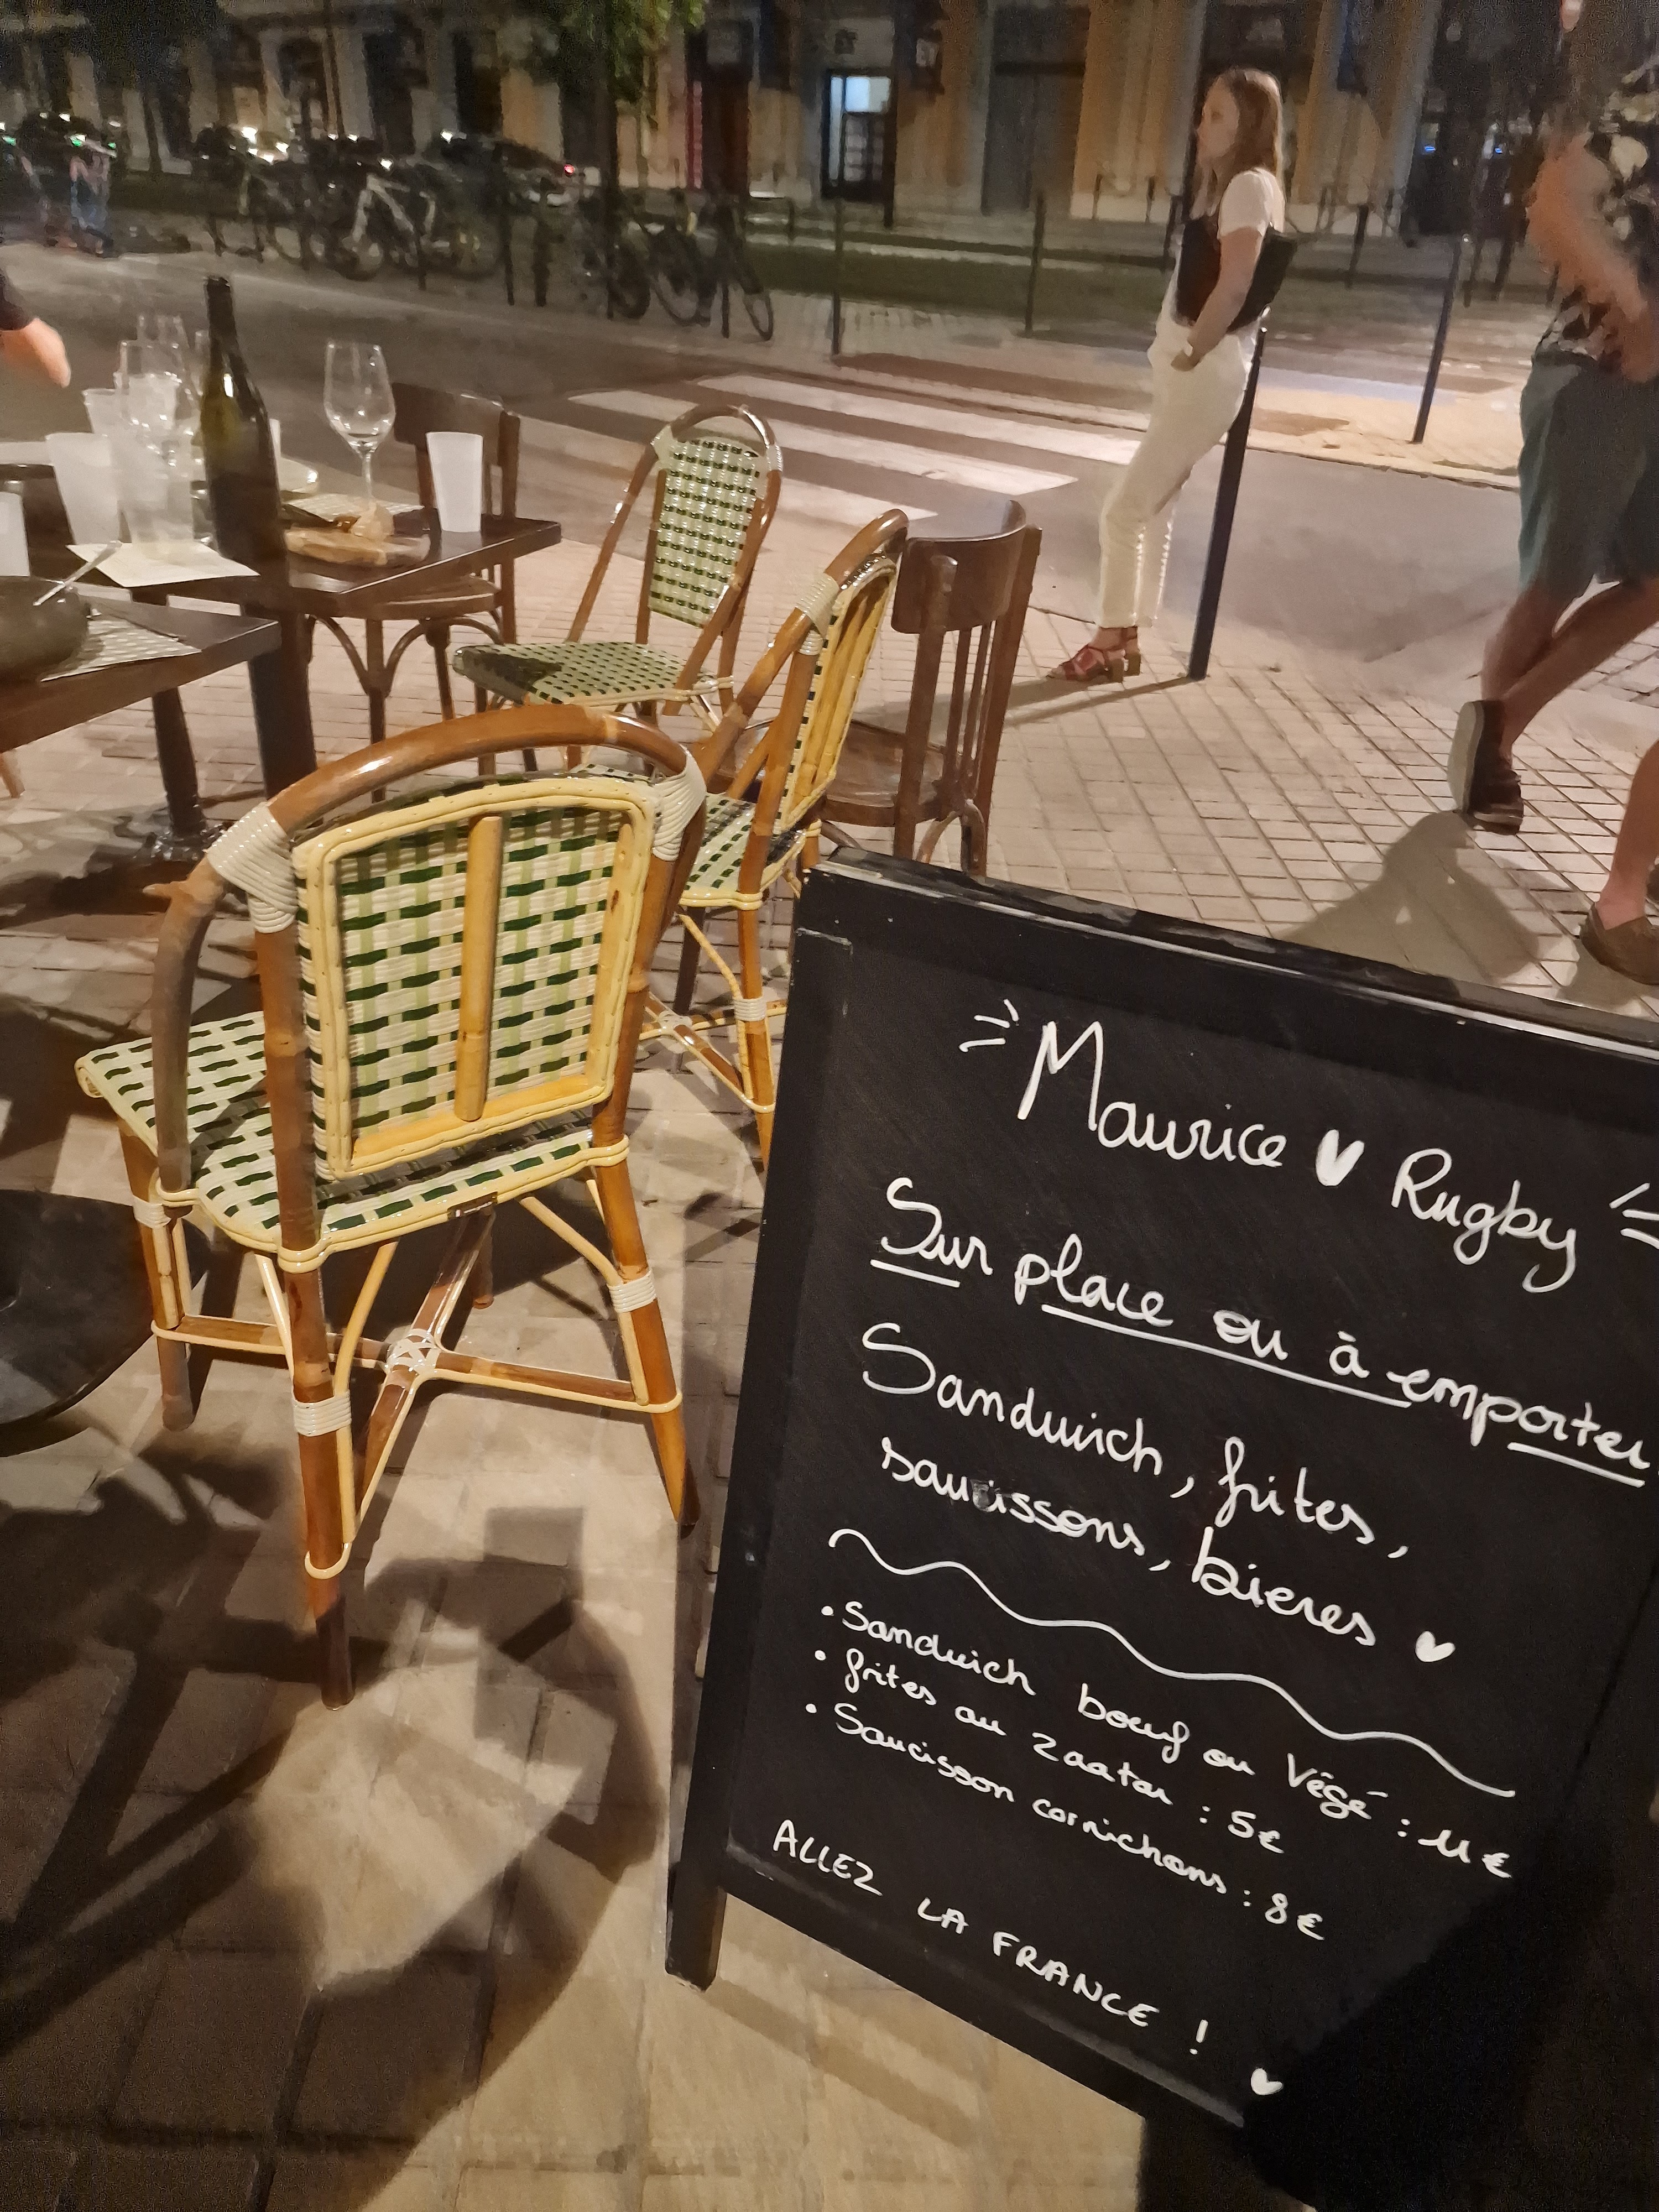 Maurice ♥ Rugby
Sur place ou à emporter
Sandwich, frites,
saucissons, bieres ♥
• Sandwich boeuf ou Végé : 11 €
• frites au zaatar : 5€
• Saucisson cornichons : 8€
ALLEZ LA FRANCE ! ♥